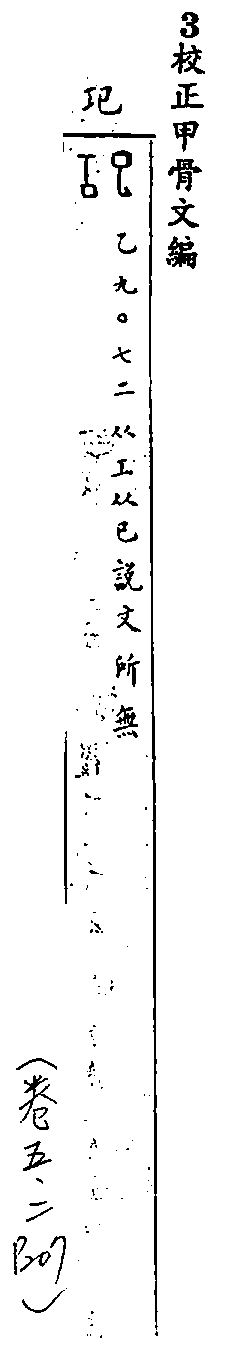 3校正甲骨文編
乙九〇七二从工从巳說文所無
(卷五、二